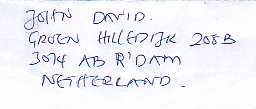 JOHN DAVID.
GROEN HILLEDIJK 208B
3074 AB R'DAM
NETHERLAND.